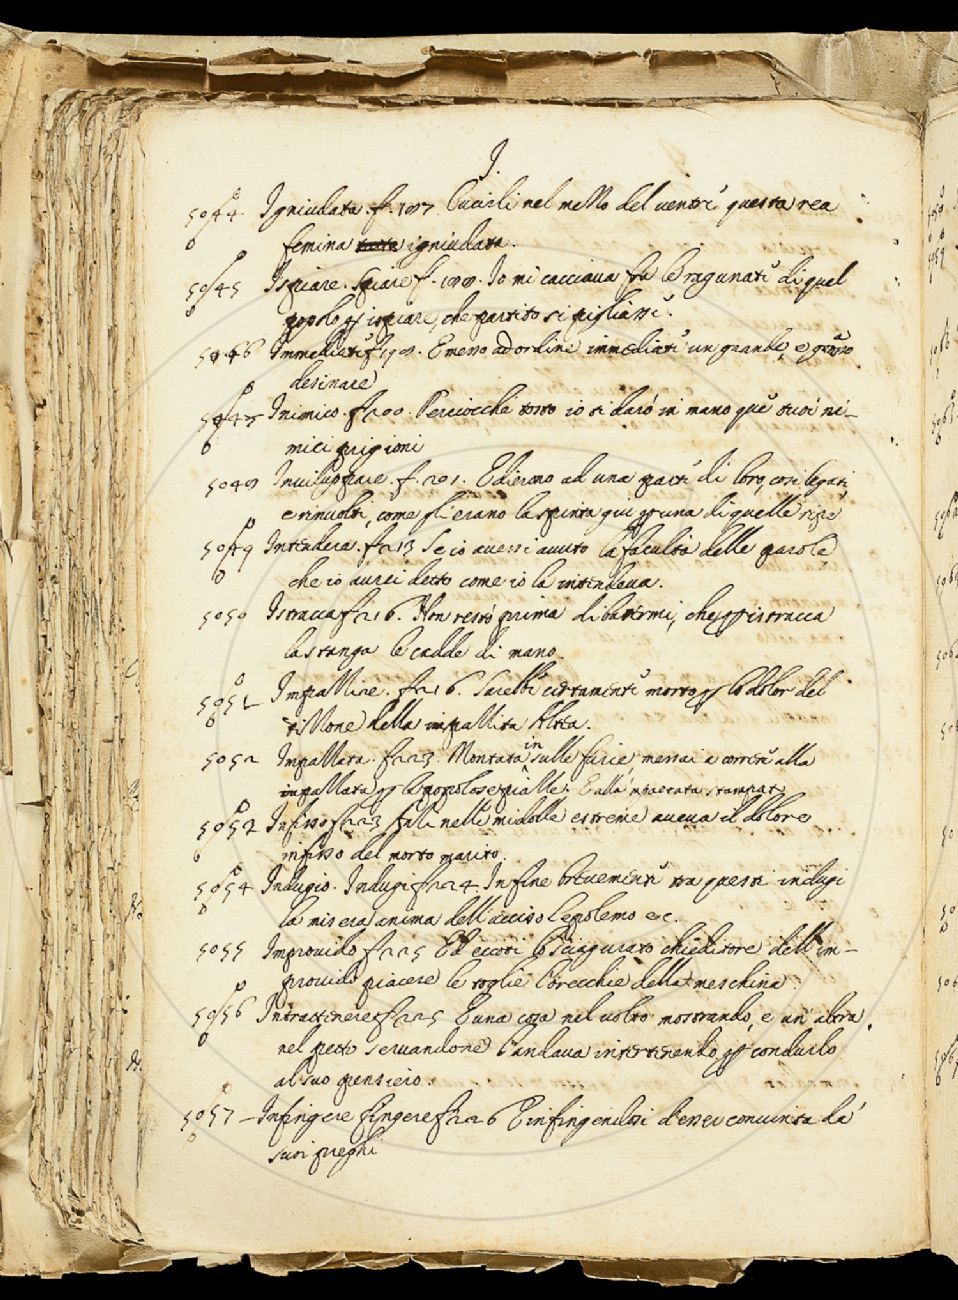 J.
5044. Igniudata. f. 197. Cucirli nel mezzo del ventre questa rea
femina igniudata.
5045 Ispiare. Spiare f. 199. Io mi cacciava fra le ragunate di quel
popolo p ispiare, che partito si pigliasse.
5046 Immediate f. 199. E messo ad ordine immediate un grande, e grosso
desinare
Inimico. f. 200. Perciocche tosto io ti darò in mano que tuoi ni-
mici prigioni
5048 Inviluppare. f. 201. E dierono ad una parte di loro, cosi legati,
e rinvolti, come gli erano la spinta giu p una di quelle ripe
5049 Intendere. f. 213 Se io avessi avuto la facultà delle parole,
che io avrei detto come io la intendeva.
5050 Istracca f. 216. Non restò prima di battermi, che p istracca
la stanga le cadde di mano
5051 Impazzire. f. 216. Sarebbe certamente morto p lo dolor del
tizzone della impazzita
5052 Impazzata. f. 223. Montata in sulle furie, messasi a correre alla
impazzata p le popolose piazze. E alla impazzata stampat
5053 Infisso f. 223 fu li nelle midolle estreme aveva il dolore
infisso del morto marito.
5054 Indugio. Indugi f. 224. In fine brevemente tra questi indugi
la misera anima dell'ucciso Lepolemo ec.
5055 Improvido f. 225 Ed eccoti lo sciagurato chieditore dell'im-
provido piacere le toglie l'orecchie della meschina.
5056 Intrattenere f. 225 E una cosa nel volto mostrando, e un'altra
nel petto servandone l'andava intertenendo p condurlo
al suo pensiero.
5057 - Infingere fingere f. 226 E infingendosi d'esser convinta da'
suoi prieghi